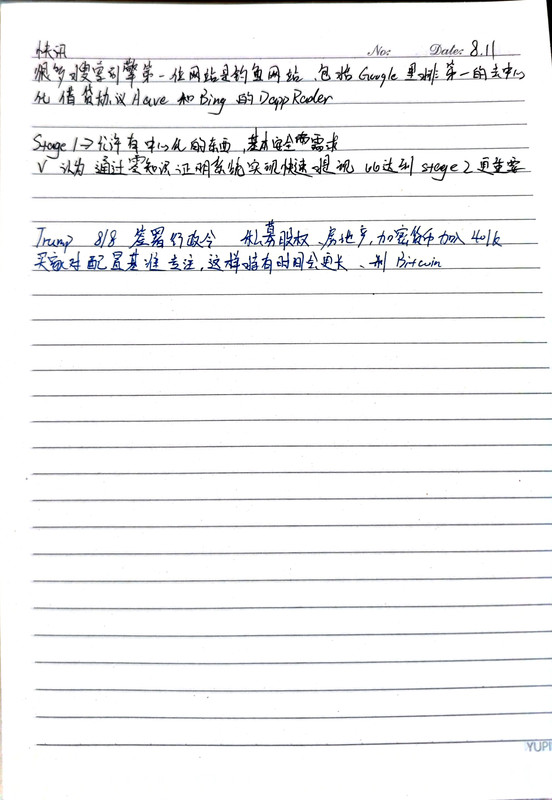 快讯 No: Date: 8.11
很多搜索引擎第一位网站是钓鱼网站、包括 Google 里排第一的去中心
化借贷协议 Aave 和 Bing 的 DappRadar
Stage 1 → 允许有中心化的东西,基本安全需求
V 认为 通过零知识证明系统实现快速提现 比达到 stage 2 更重要
Trump 8/8 签署行政令 私募股权、房地产,加密货币加入 401k
买家对配置基准专注,这样持有时间会更长、利 Bitcoin
YUPI